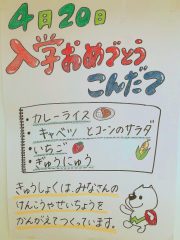 4月20日
入学おめでとう
こんだて
・カレーライス
・キャベツとコーンのサラダ
・いちご
・ぎゅうにゅう
きゅうしょくは、みなさんの
けんこうやせいちょうを
かんがえてつくっています。